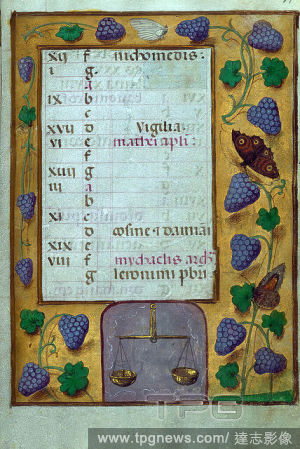 xii f nichomedis:
i g
a
ix b
c
xvii d vigilia
vi e mathei apli:
f
xviii g
iii a
b
xi c
d cosme et damiai
xix e
viii f mychaelis arch
g Ieronimi pbri
TPG
www.tpgnews.com/ 達志影像